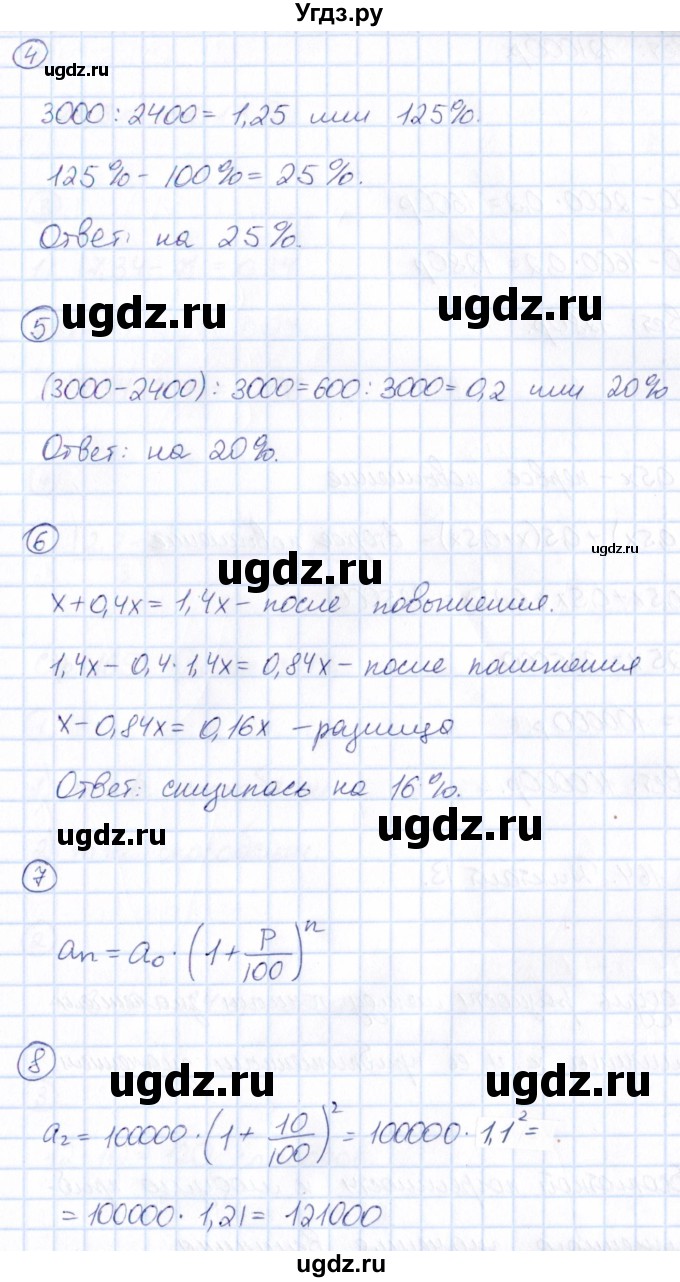 Угдз.ру
4
ugdz.ru
3000 : 2400 = 1,25 или 125%.
125% - 100% = 25%.
Ответ: на 25%.
ugdz.ru
ugdz.ru
5
(3000-2400) : 3000 = 600 : 3000 = 0,2 или 20%
Ответ: на 20%.
6
ugdz.ru
ugdz.ru
x + 0,4x = 1,4x - после повышения.
1,4x - 0,4 · 1,4x = 0,84x - после понижения
x - 0,84x = 0,16x - разница
Ответ: снизилась на 16%.
ugdz.ru
ugdz.ru
7
aₙ = a₀ · (1 + P/100)ⁿ
8
ugdz.ru
ugdz.ru
a₂ = 100000 · (1 + 10/100)² = 100000 · 1,1² = .
= 100000 · 1,21 = 121000
ugdz.ru